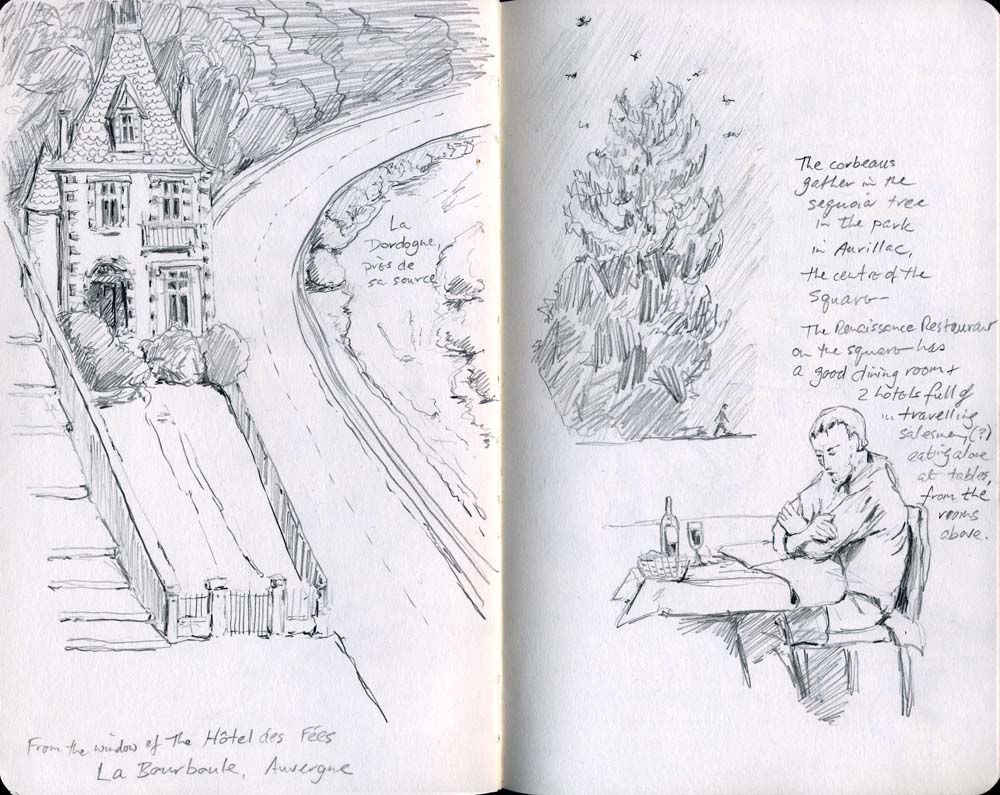 La
Dordogne,
près de
sa source
From the window of The Hôtel des Fées
La Bourboule, Auvergne
The corbeaus
gather in the
sequoia tree
in the park
in Aurillac,
the centre of the
square—
The Renaissance Restaurant
on the square has
a good dining room +
2 hotels full of
travelling
salesmen, (?)
eating alone
at tables,
from the
rooms
above.